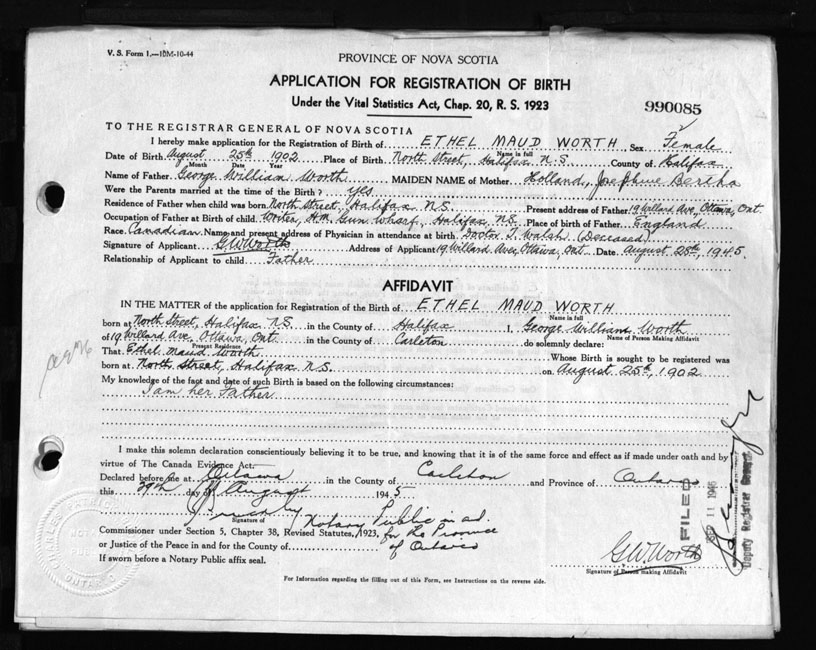 V. S. Form 1.—10M-10-44
PROVINCE OF NOVA SCOTIA
APPLICATION FOR REGISTRATION OF BIRTH
Under the Vital Statistics Act, Chap. 20, R. S. 1923
990085
TO THE REGISTRAR GENERAL OF NOVA SCOTIA
I hereby make application for the Registration of Birth of ETHEL MAUD WORTH Sex Female
Name in full
Date of Birth August 25th 1902 Place of Birth North Street, Halifax N.S County of Halifax
Month Date Year
Name of Father George William Worth MAIDEN NAME of Mother Holland, Josephine Bertha
Were the Parents married at the time of the Birth? yes
Residence of Father when child was born North Street, Halifax NS. Present address of Father 19 Willard Ave, Ottawa, Ont
Occupation of Father at Birth of child Writer, H.M. Gun Wharf, Halifax, NS Place of birth of Father England
Race Canadian Name and present address of Physician in attendance at birth Doctor T. Walsh (Deceased)
Signature of Applicant G.W.Worth Address of Applicant 19 Willard Ave, Ottawa, Ont. Date August 25th, 1945.
Relationship of Applicant to child Father
AFFIDAVIT
IN THE MATTER of the application for Registration of Birth of ETHEL MAUD WORTH
Name in full
born at North Street, Halifax NS. in the County of Halifax I, George William Worth
Name of Person Making Affidavit
of 19 Willard Ave, Ottawa, Ont in the County of Carleton do solemnly declare:
Present Residence
That Ethel Maud Worth Whose Birth is sought to be registered was
born at North Street, Halifax NS. on August 25th, 1902
My knowledge of the fact and date of such Birth is based on the following circumstances:
I am her Father
I make this solemn declaration conscientiously believing it to be true, and knowing that it is of the same force and effect as if made under oath and by
virtue of The Canada Evidence Act.
Declared before me at Ottawa in the County of Carleton and Province of Ontario
this 29th day of August 1945
Signature of Notary Public in and
Commissioner under Section 5, Chapter 38, Revised Statutes, 1923, for the Province
or Justice of the Peace in and for the County of of Ontario
If sworn before a Notary Public affix seal.
G.W.Worth
Signature of Person Making Affidavit
FILED
SEP 11 1945
Deputy Registrar General
For Information regarding the filling out of this Form, see Instructions on the reverse side.